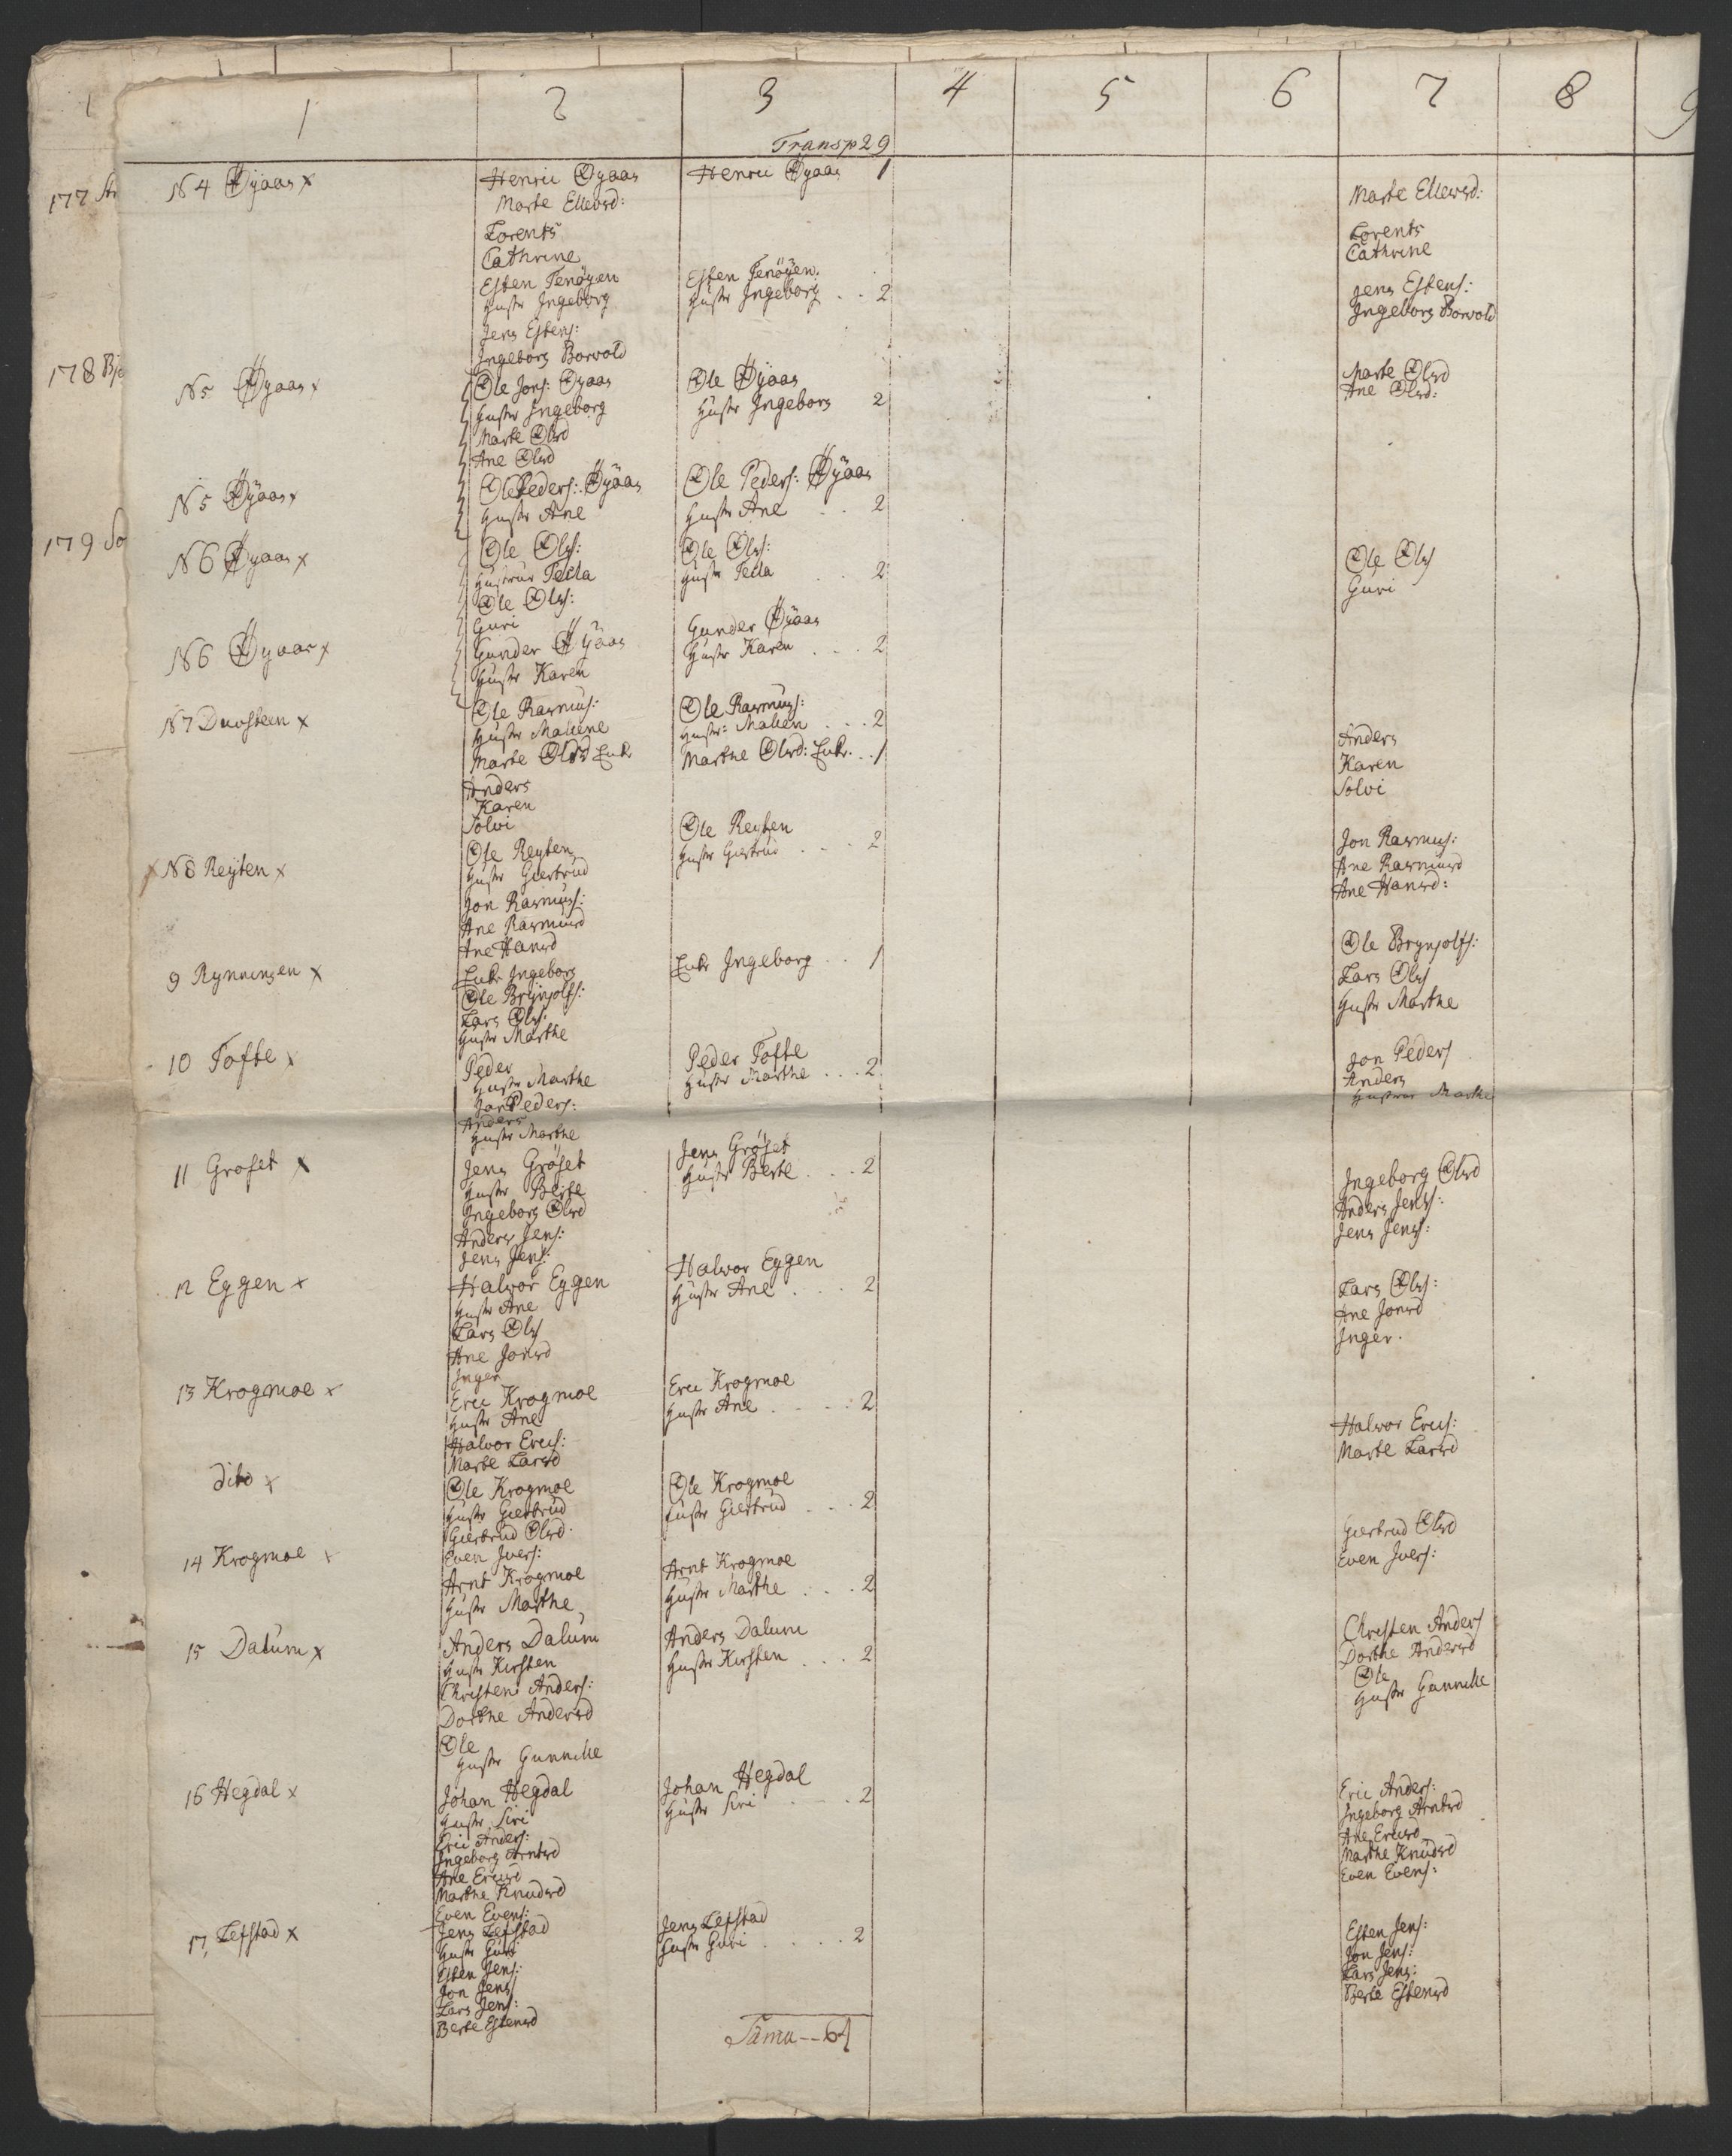 1 2 3 4 5 6 7 8 9
Transp 29
177
178
179
N 4 Øyaas x
Henric Øyaas
Marte Ellewsd:
Lorents
Cathrine
Esten Tenöyen
Hustr Ingeborg
Jens Estens:
Ingeborg Borvold
Henric Øyaas 1
Esten Tenöyen
Hustr Ingeborg . . 2
Marte Ellewsd:
Lorents
Cathrine
Jens Estens:
Ingeborg Borvold
N 5 Øyaas x
Ole Jons: Øyaas
Hustr Ingeborg
Marte Olsd
Ane Olsd
Ole Øyaas
Hustr Ingeborg 2
Marte Olsd
Ane Olsd:
N 5 Øyaas x
Ole Peders: Øyaas
Hustr Ane
Ole Peders: Øyaas
Hustr Ane . . 2
N 6 Øyaas x
Ole Ols:
Hustrue Tecla
Ole Ols:
Guri
Ole Ols:
Hustr Tecla . . 2
Ole Ols
Guri
N 6 Øyaas x
Gunder Øyaas
Hustr Karen
Gunder Øyaas
Hustr Karen . . . 2
N 7 Duosteen x
Ole Rasmus:
Hustr Maliene
Marte Olsd Enke
Anders
Karen
Solvi
Ole Rasmus:
Hustr: Malien . . . 2
Marthe Olsd: Enke . . 1
Anders
Karen
Solvi
x N 8 Reyten x
Ole Reyten
Hustr Giertrud
Jon Rasmus:
Ane Rasmusd
Ane Hansd
Ole Reyten
Hustr Giertrud . . . 2
Jon Rasmus:
Ane Rasmusd
Ane Hansd:
9 Rynningen x
Enke Ingeborg
Ole Brynjolfs:
Lars Ols:
Hustr Marthe
Enke Ingeborg . . 1
Ole Brynjolfs:
Lars Ols
Hustr Marthe
10 Tofte x
Peder
Hustr Marthe
Jon Peders:
Anders
Hustr Marthe
Peder Tofte
Hustr Marthe . . . 2
Jon Peders
Anders
Hustrue Marthe
11 Grøset x
Jens Grøset
Hustr Berte
Ingeborg Olsd
Anders Jens:
Jens Jens:
Jens Grøset
Hustr Berte . . . 2
Ingeborg Olsd
Anders Jens:
Jens Jens:
12 Eggen x
Halvor Eggen
Hustr Ane
Lars Ols
Ane Jonsd
Inger
Halvor Eggen
Hustr Ane . . . 2
Lars Ols:
Ane Jonsd
Inger.
13 Krogmoe x
Eric Krogmoe
Hustr Ane
Halvor Erics:
Marte Larsd
Eric Krogmoe
Hustr Ane . . . . 2
Halvor Erics:
Marte Larsd
dito x
Ole Krogmoe
Hustr Giertrud
Giertrud Olsd
Even Ivers:
Ole Krogmoe
Hustr Giertrud . . . 2
Giertrud Olsd
Even Ivers:
14 Krogmoe x
Arnt Krogmoe
Hustr Marthe
Arnt Krogmoe
Hustr Marthe . . . 2
15 Dalum x
Anders Dalum
Hustr Kirsten
Christen Anders:
Dorthe Andersd
Ole
Hustr Gunnille
Anders Dalum
Hustr Kirsten . . . 2
Christen Anders
Dorthe Andersd
Ole
Hustr Gunnille
16 Hegdal x
Johan Hegdal
Hustr Siri
Eric Anders:
Ingeborg Arntsd
Ane Ericsd
Marthe Knudsd
Even Evens:
Johan Hegdal
Hustr Siri . . . 2
Eric Anders:
Ingeborg Arntsd
Ane Ericsd
Marthe Knudsd
Even Evens:
17, Lefstad x
Jens Lefstad
Hustr Guri
Esten Jens:
Jon Jens
Lars Jens:
Berte Estensd
Jens Lefstad
Hustr Guri . . . . 2
Esten Jens:
Jon Jens:
Lars Jens:
Berte Estensd
Suma -- 61